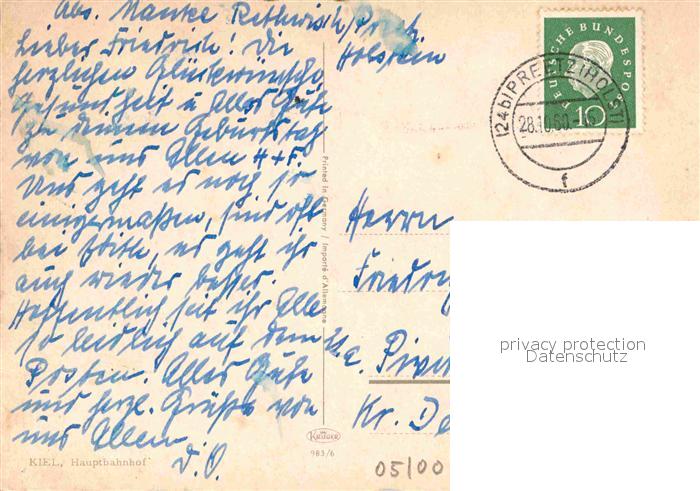 Abs. Manke Rethwisch/Preetz
Holstein
Lieber Friedrich! Die
herzlichen Glückwünsche
Gesundheit u Alles Gute
zu deinem Geburtstag
von uns Allen
Uns geht es noch so
einigermaßen, sind oft
bei Edith, es geht ihr
auch wieder besser.
Hoffentlich seit ihr Alle
so leidlich auf dem
Posten. Alles Gute
und herzl. Grüße von
uns Allen
D.O.
KIEL, Hauptbahnhof
Printed in Germany / Importé d'Allemagne
KRÜGER
983/6
DEUTSCHE BUNDESPOST
10
(24b) PREETZ (HOLST)
28.10.60
f
Herrn
Kr.
05/00
privacy protection
Datenschutz